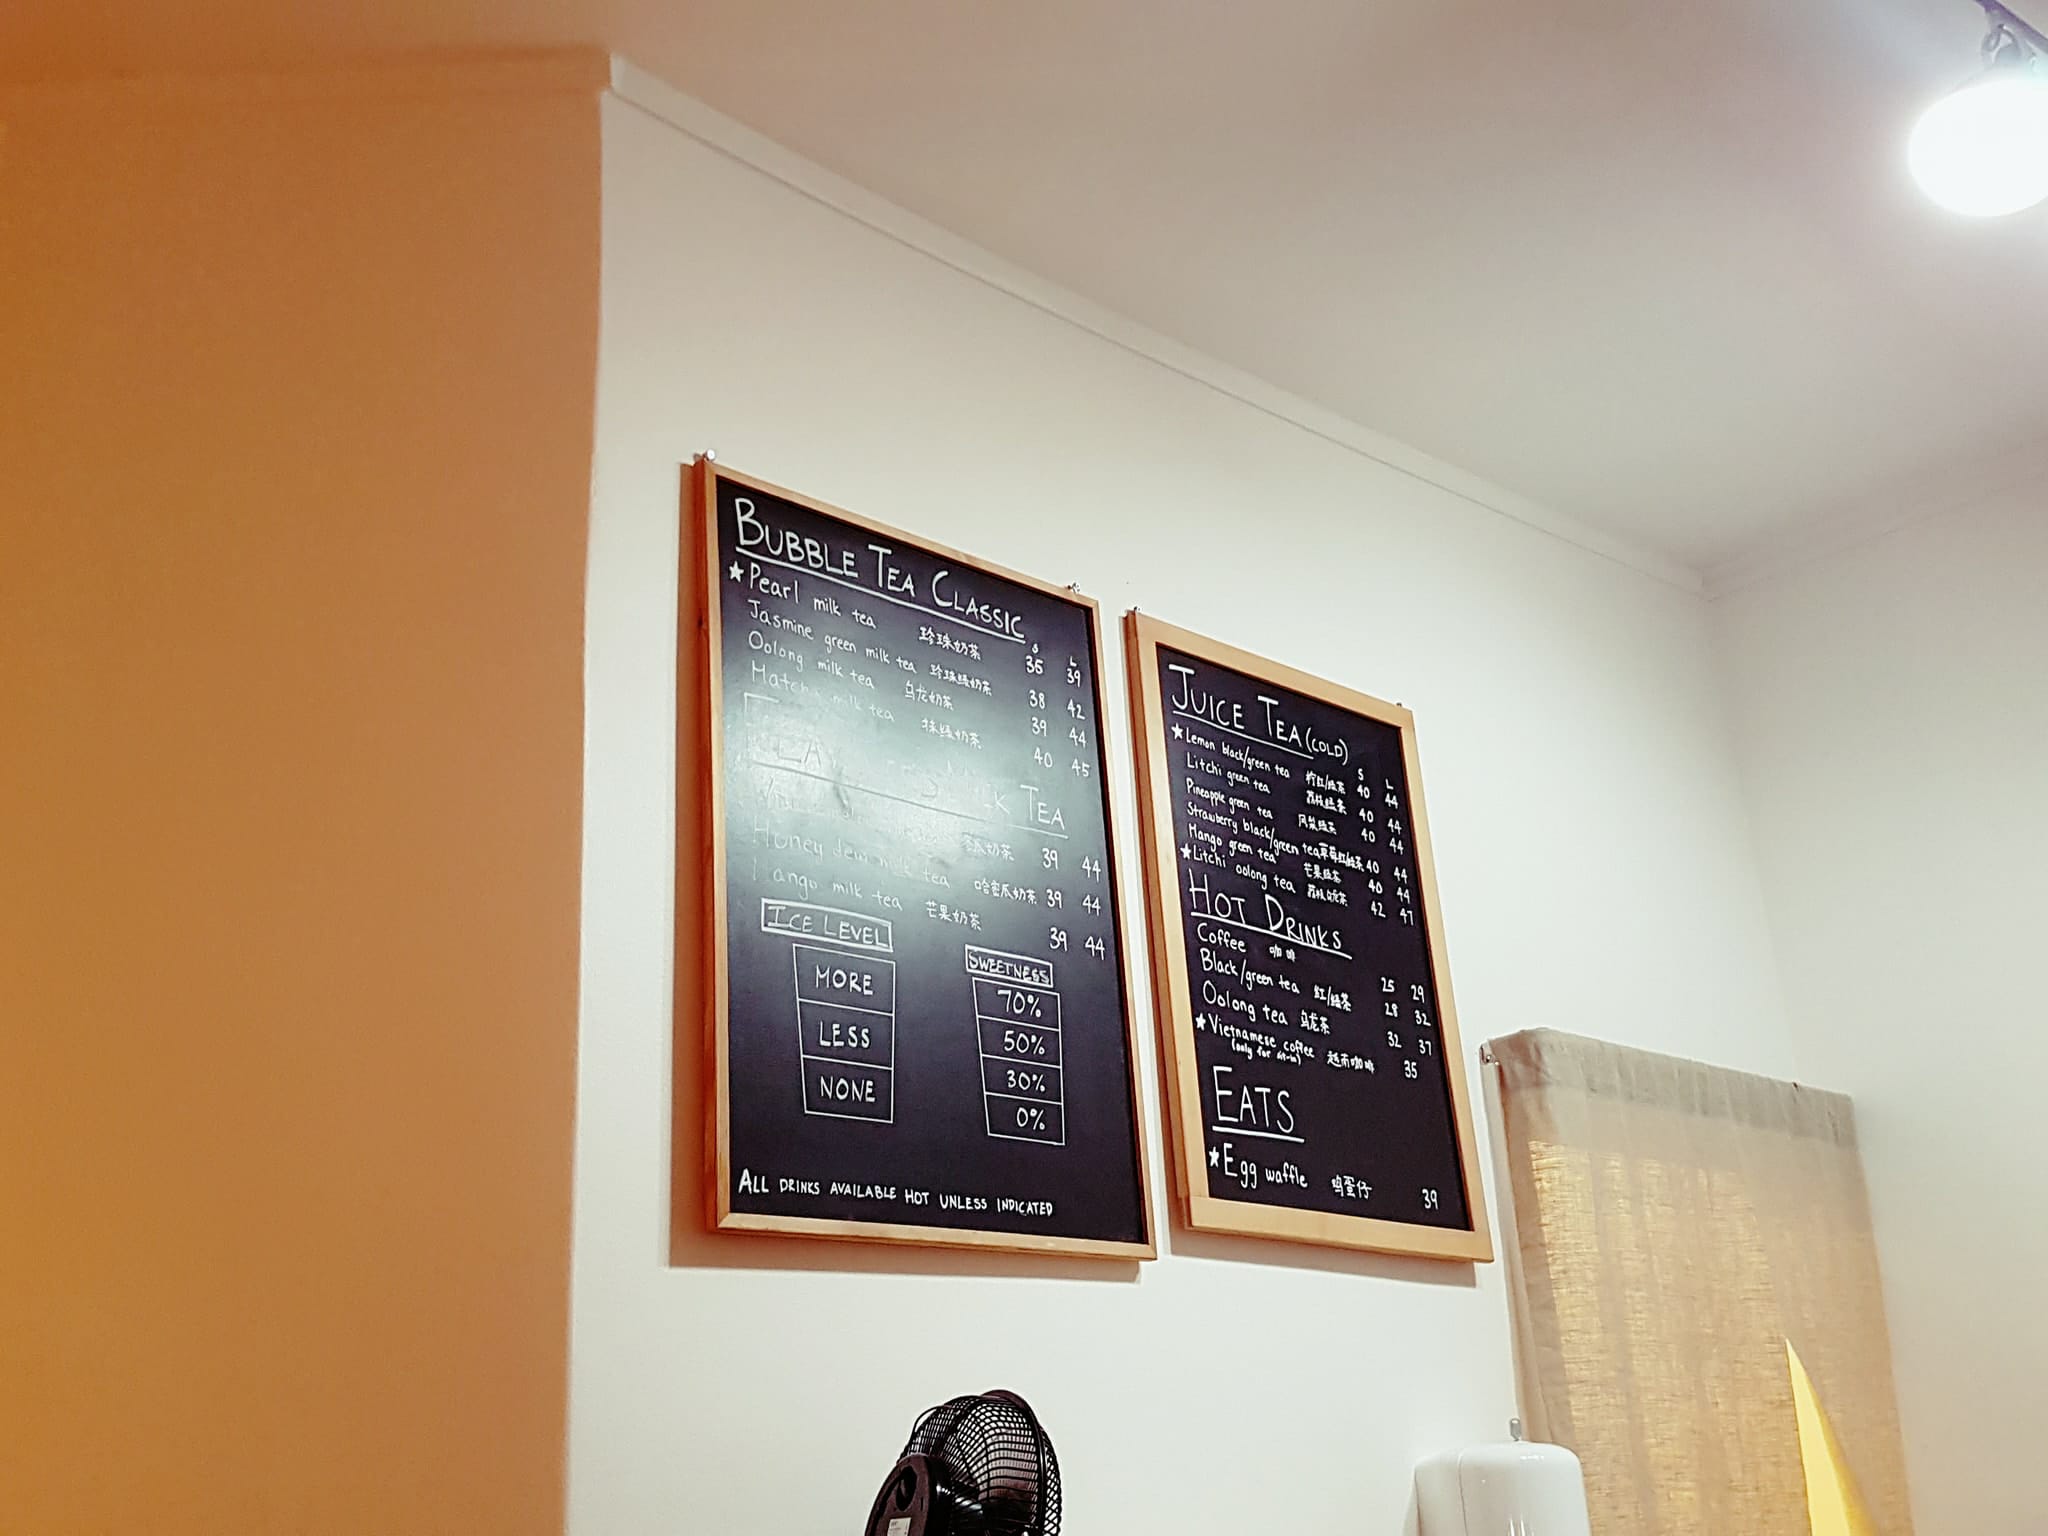 BUBBLE TEA CLASSIC
S L
★Pearl milk tea 珍珠奶茶 35 39
Jasmine green milk tea 珍珠绿奶茶 38 42
Oolong milk tea 乌龙奶茶 39 44
Matcha milk tea 抹绿奶茶 40 45
MILK TEA
瓜奶茶 39 44
Honey dew milk tea 哈密瓜奶茶 39 44
Mango milk tea 芒果奶茶 39 44
ICE LEVEL
MORE
LESS
NONE
SWEETNESS
70%
50%
30%
0%
ALL DRINKS AVAILABLE HOT UNLESS INDICATED
JUICE TEA (COLD)
S L
★Lemon black/green tea 柠红/绿茶 40 44
Litchi green tea 荔枝绿茶 40 44
Pineapple green tea 凤梨绿茶 40 44
Strawberry black/green tea 草莓红/绿茶 40 44
Mango green tea 芒果绿茶 40 44
★Litchi oolong tea 荔枝乌龙茶 42 47
HOT DRINKS
Coffee 咖啡 25 29
Black/green tea 红/绿茶 28 32
Oolong tea 乌龙茶 32 37
★Vietnamese coffee 越南咖啡 35
(only for sit-in)
EATS
★Egg waffle 鸡蛋仔 39